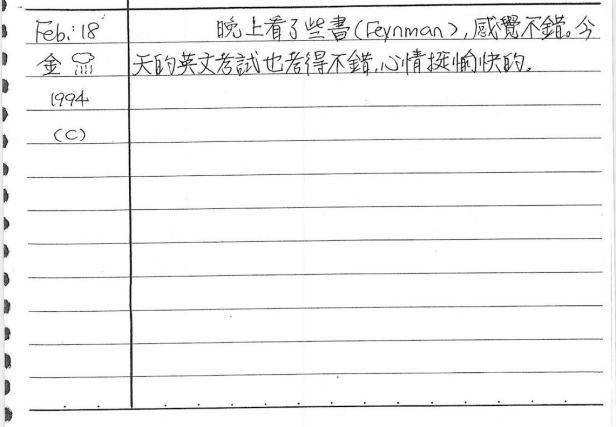 Feb. 18 晚上看了些書(Feynman),感覺不錯。今
金 天的英文考試也考得不錯,心情挺愉快的。
1994
(C)